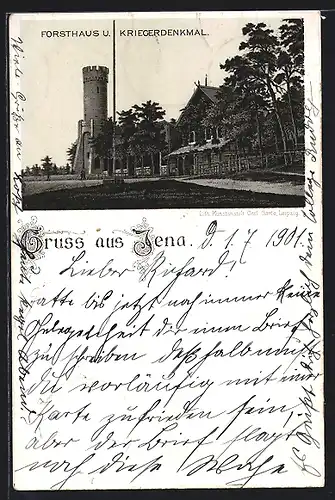 FORSTHAUS U. KRIEGERDENKMAL.
Lith. Kunstanstalt Carl Garte, Leipzig
Gruss aus Jena. d. 1.7.1901.
Lieber Richard!
Hatte bis jetzt noch immer keine
Gelegenheit dir einen Brief
zu schreiben deßhalb mußt
du vorläufig mit einer
Karte zufrieden sein,
aber der Brief folgt
noch diese Woche
Viele Grüße an
Es grüßt dich